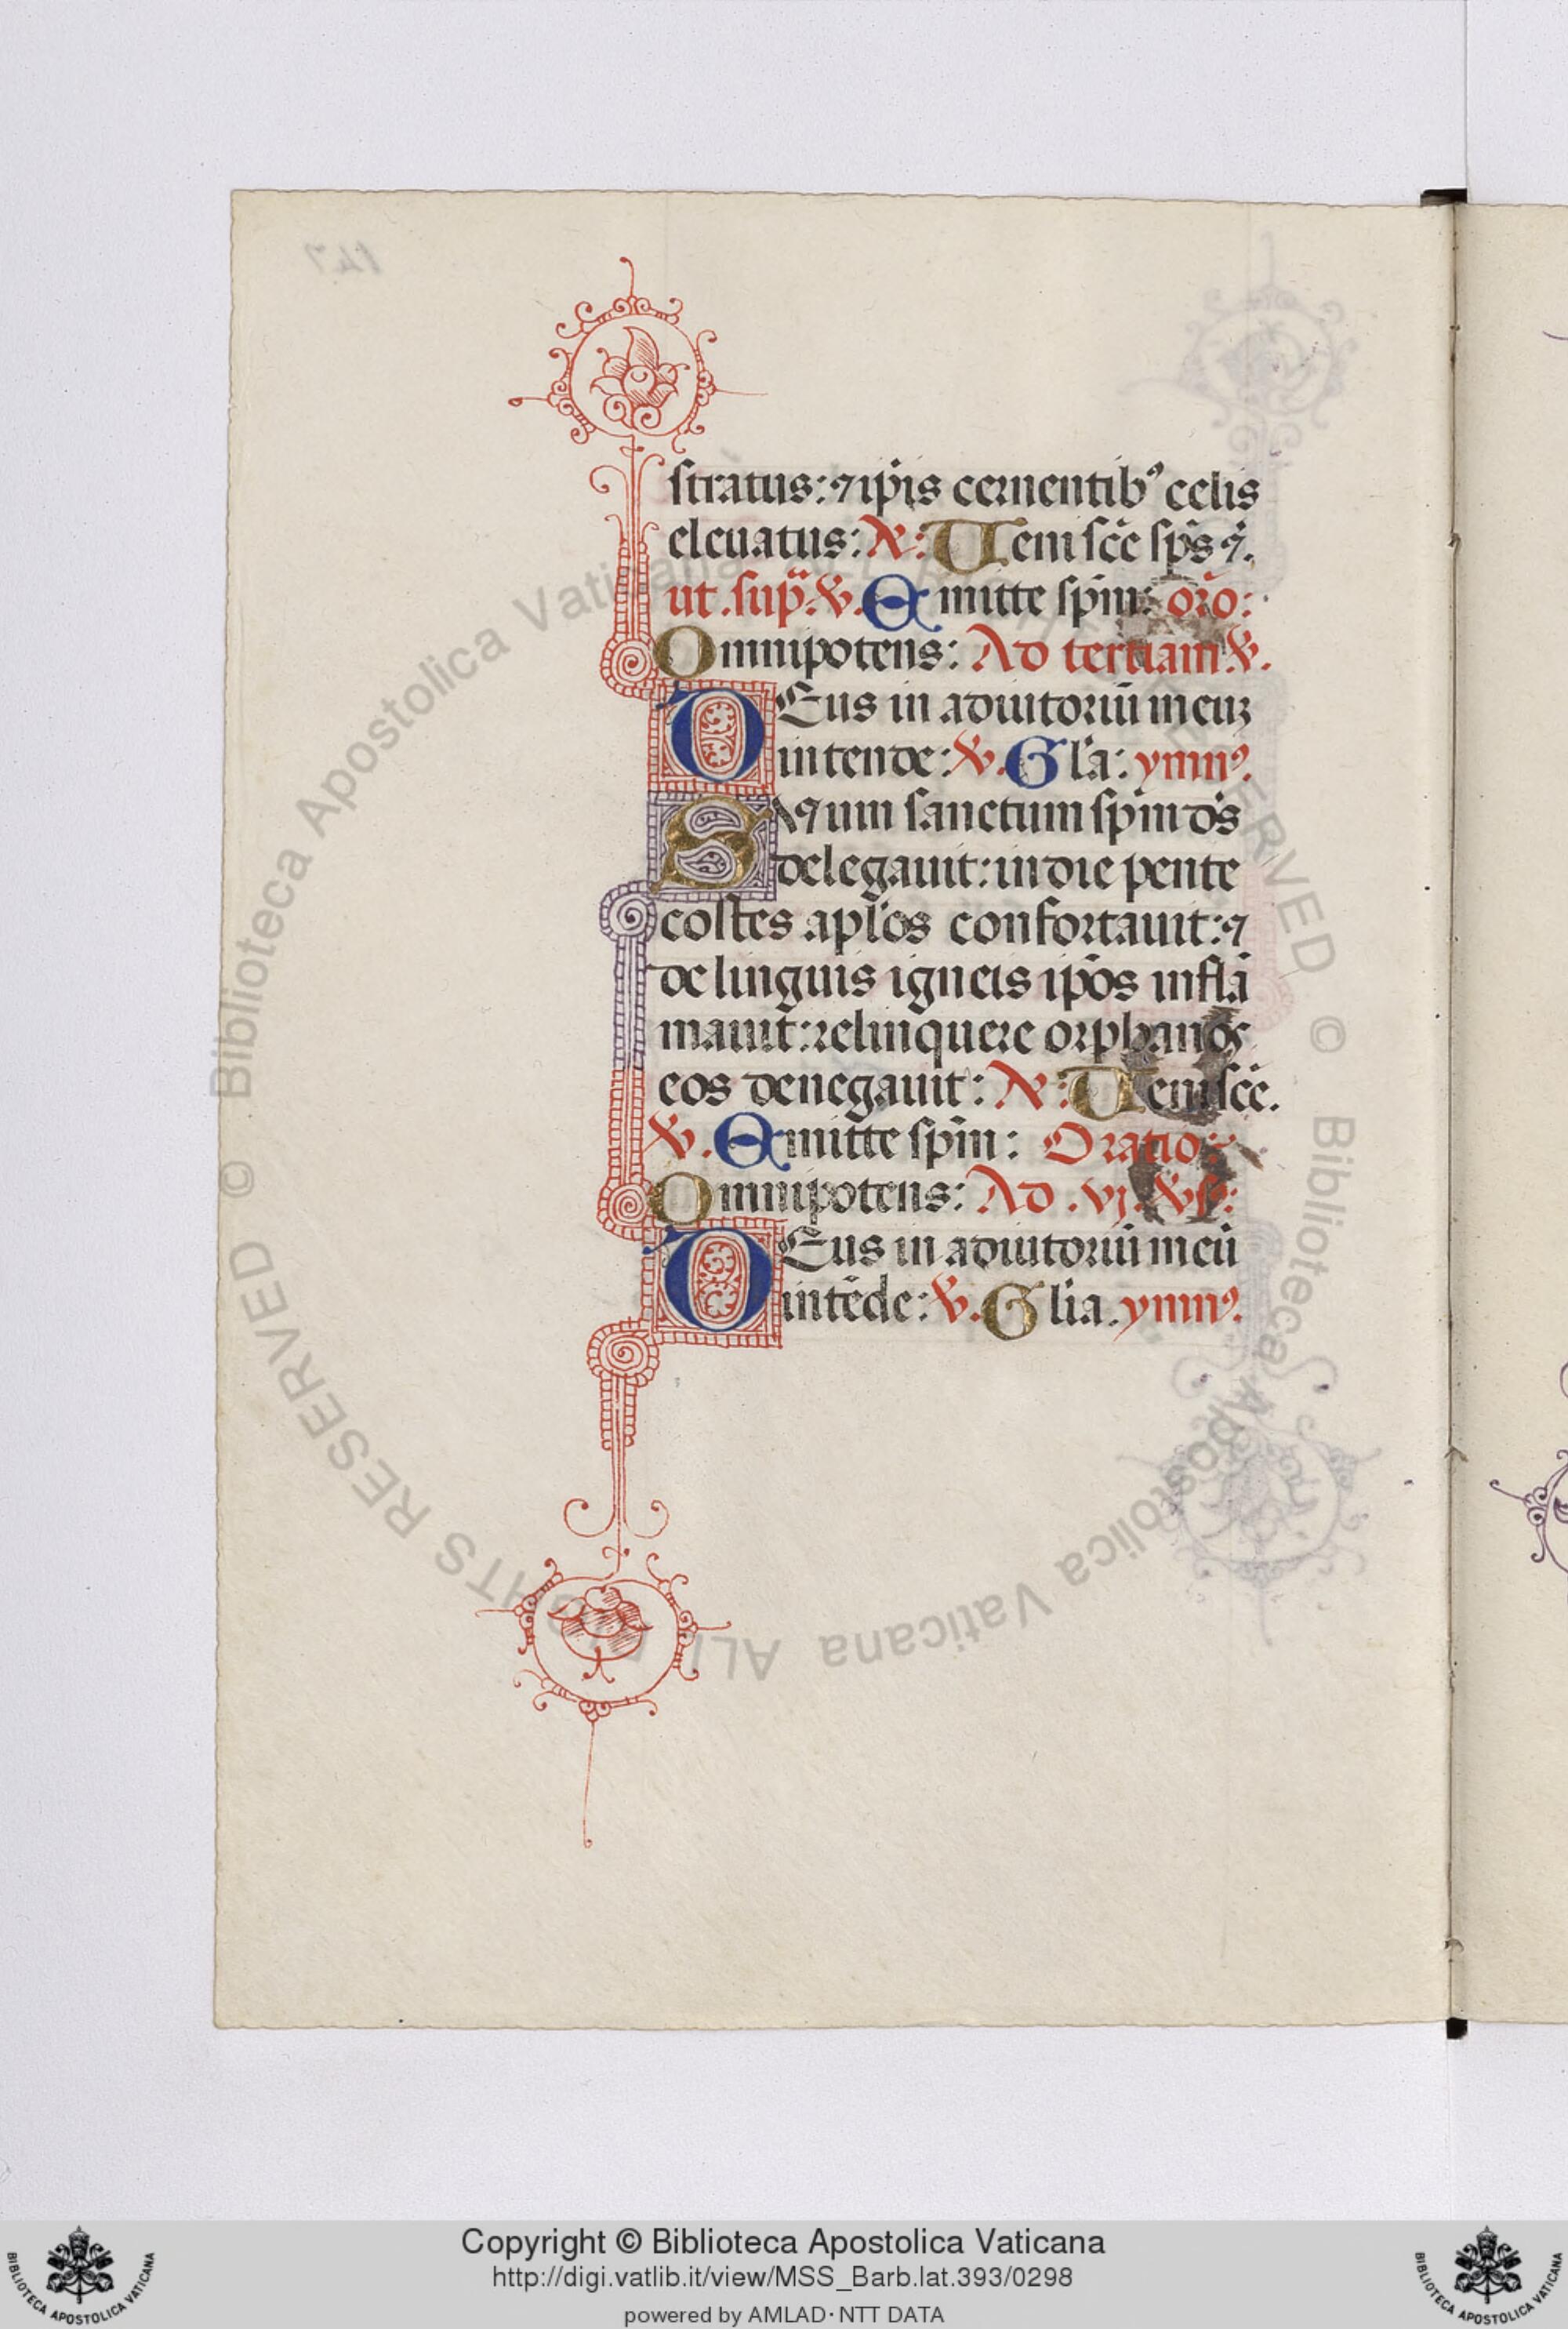 147
stratus: ⁊ ip̄is cernentibꝰ celis
eleuatus: ℟: Ueni sc̄e sp̄s ⁊.
ut .sup̄. ℣. Emitte sp̄m: or̄o:
Omnipotens: Ad tertiam ℣.
DEus in adiutoriū meuꝫ
intende: ℣. Gl̄a: ymnꝰ.
SAꝯum sanctum sp̄m d̄s
delegauit: in die pente
costes apl̄os confortauit: ⁊
de linguis igneis ip̄os inflā
mauit: relinquere orphanos
eos denegauit: ℟: Ueni sc̄e.
℣. Emitte sp̄m: Oratio:
Omnipotens: Ad .vj. ℣s:
DEus in adiutoriū meū
intēde: ℣. Gl̄ia. ymnꝰ.
© Biblioteca Apostolica Vaticana ALL RIGHTS RESERVED © Biblioteca Apostolica Vaticana ALL RIGHTS RESERVED
Copyright © Biblioteca Apostolica Vaticana
http://digi.vatlib.it/view/MSS_Barb.lat.393/0298
powered by AMLAD·NTT DATA
BIBLIOTECA APOSTOLICA VATICANA
BIBLIOTECA APOSTOLICA VATICANA